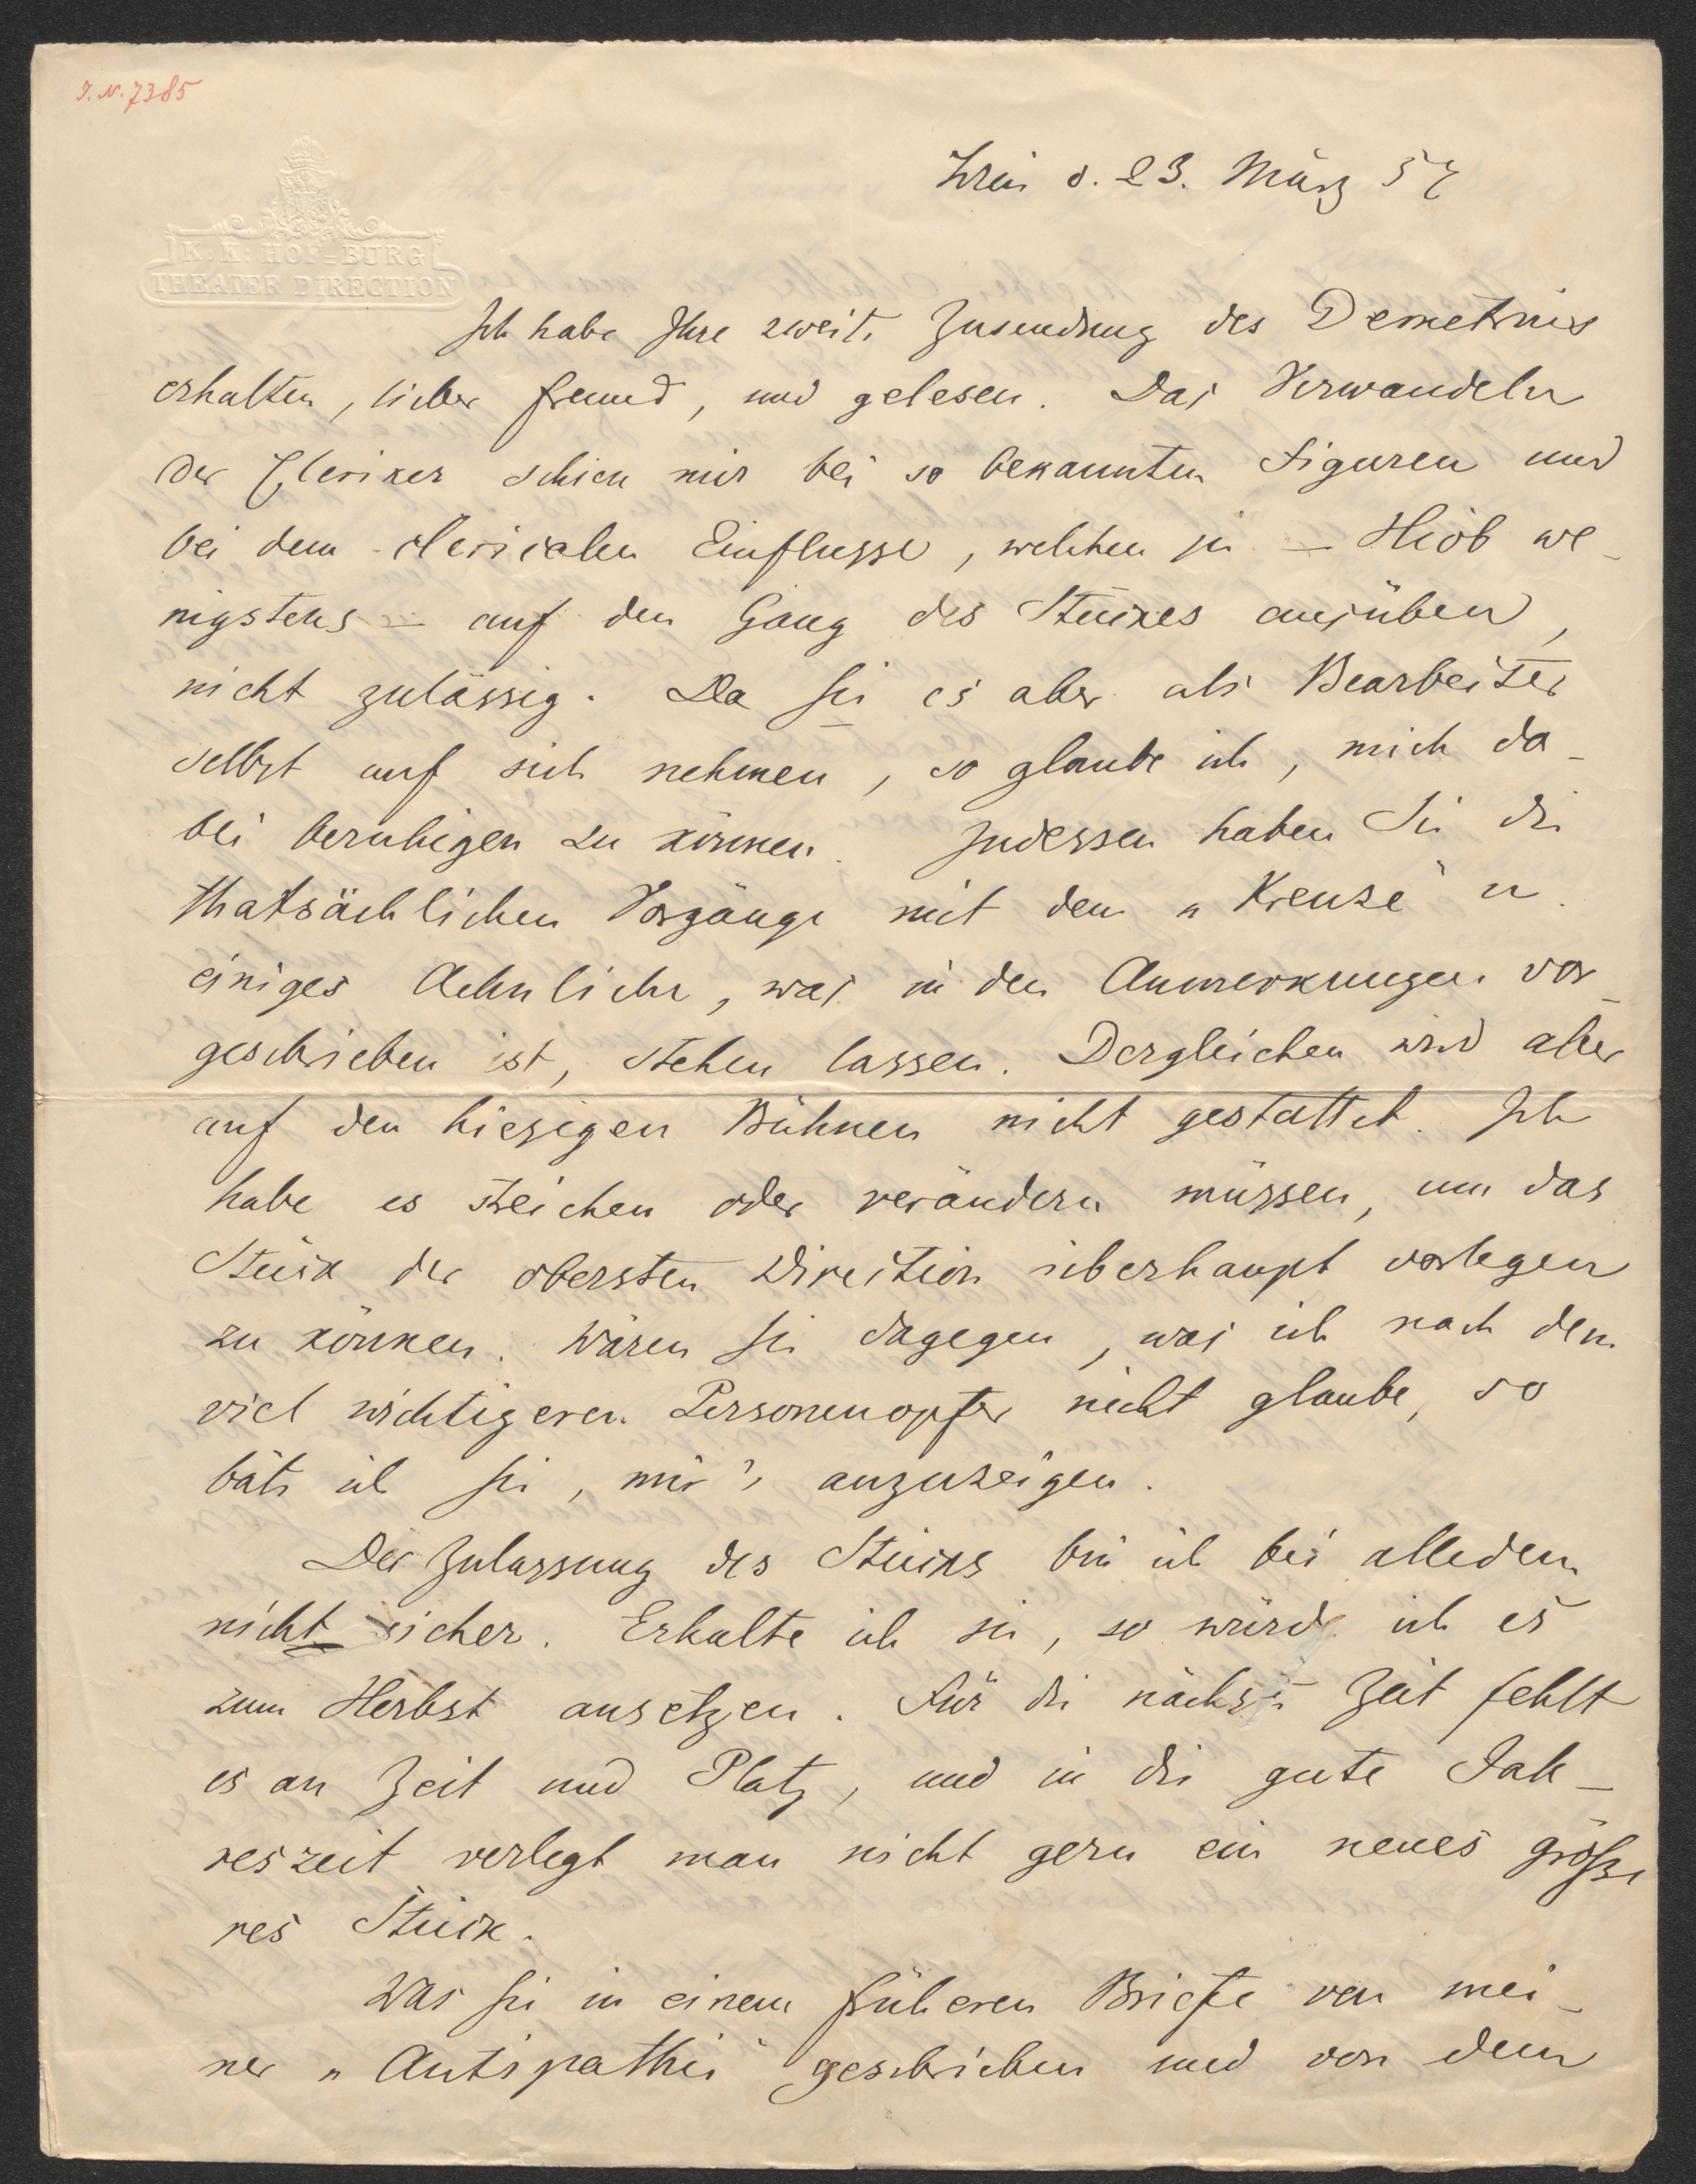 I. N. 7385
K: K: HOF=BURG
THEATER DIRECTION
Wien d. 23. März 57
Ich habe Ihre zweite Zusendung des Demetrius
erhalten, lieber Freund, und gelesen. Das Verwandeln
der Cleriker schien mir bei so bekannten Figuren und
bei dem clericalen Einflusse, welchen sie – Hiob we-
nigstens – auf den Gang des Stückes ausüben,
nicht zulässig. Da Sie es aber als Bearbeiter
selbst auf sich nehmen, so glaube ich, mich da-
bei beruhigen zu können. Indessen haben Sie die
thatsächlichen Vorgänge mit dem „Kreuze" u.
einiges Aehnliche, was in den Anmerkungen vor-
geschrieben ist, stehen lassen. Dergleichen wird aber
auf den hiesigen Bühnen nicht gestattet. Ich
habe es streichen oder verändern müssen, um das
Stück der obersten Direction überhaupt vorlegen
zu können. Wären Sie dagegen, was ich nach dem
viel wichtigeren Personenopfer nicht glaube, so
bäte ich Sie, mir's anzuzeigen.
Der Zulassung des Stücks bin ich bei alledem
nicht sicher. Erhalte ich sie, so würde ich es
zum Herbst ansetzen. Für die nächste Zeit fehlt
es an Zeit und Platz, und in die gute Jah-
reszeit verlegt man nicht gern ein neues größe
res Stück.
Was Sie in einem früheren Briefe von mei-
ner „Antipathie" geschrieben und von dem